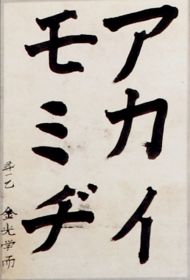 アカイ
モミヂ
金光学而